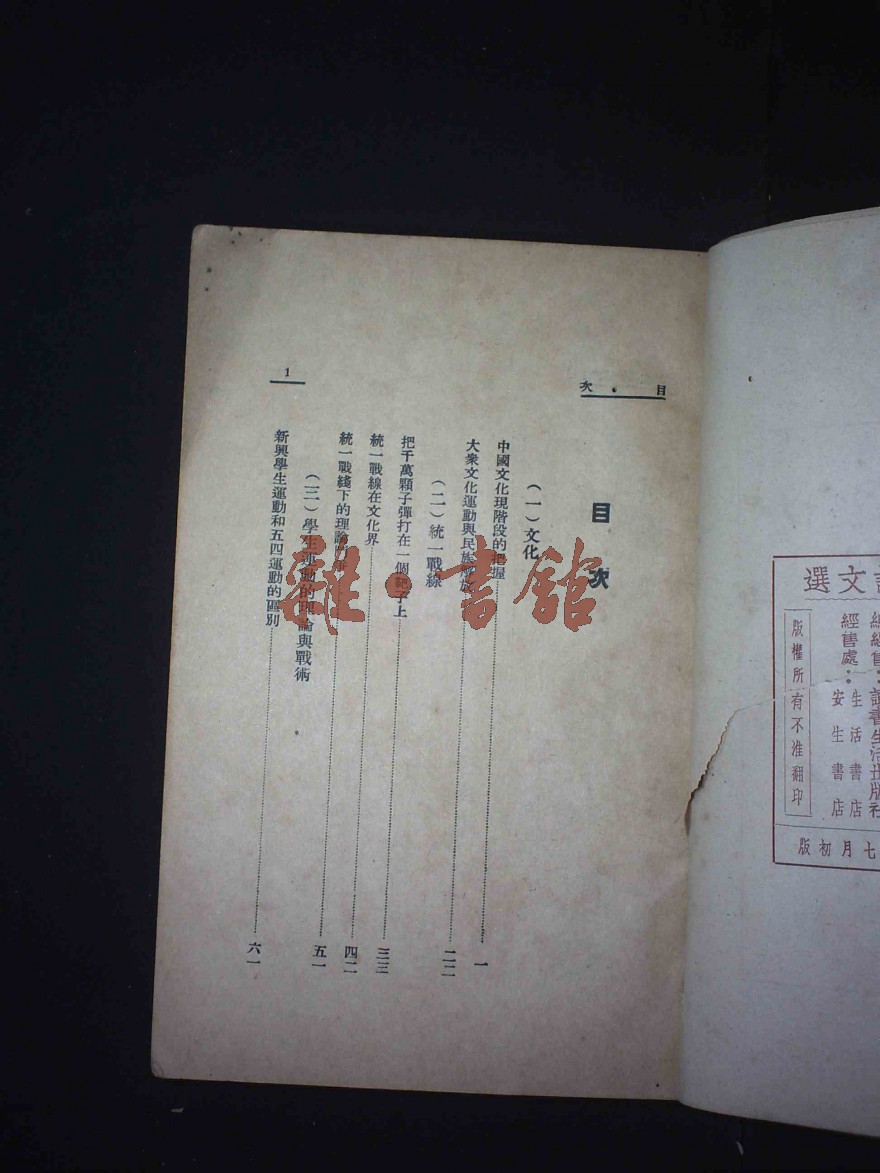 目・次
目次
（一）文化
中國文化現階段的把握……一
大衆文化運動與民族解放……二二
（二）統一戰線
把千萬顆子彈打在一個靶子上……三三
統一戰線在文化界……四二
統一戰綫下的理論……五一
（三）學生運動的理論與戰術
新興學生運動和五四運動的區別……六一
1
雜・書館
文選
總經售：讀書生活出版社
經售處：生活書店
安生書店
版權所有不准翻印
七月初版